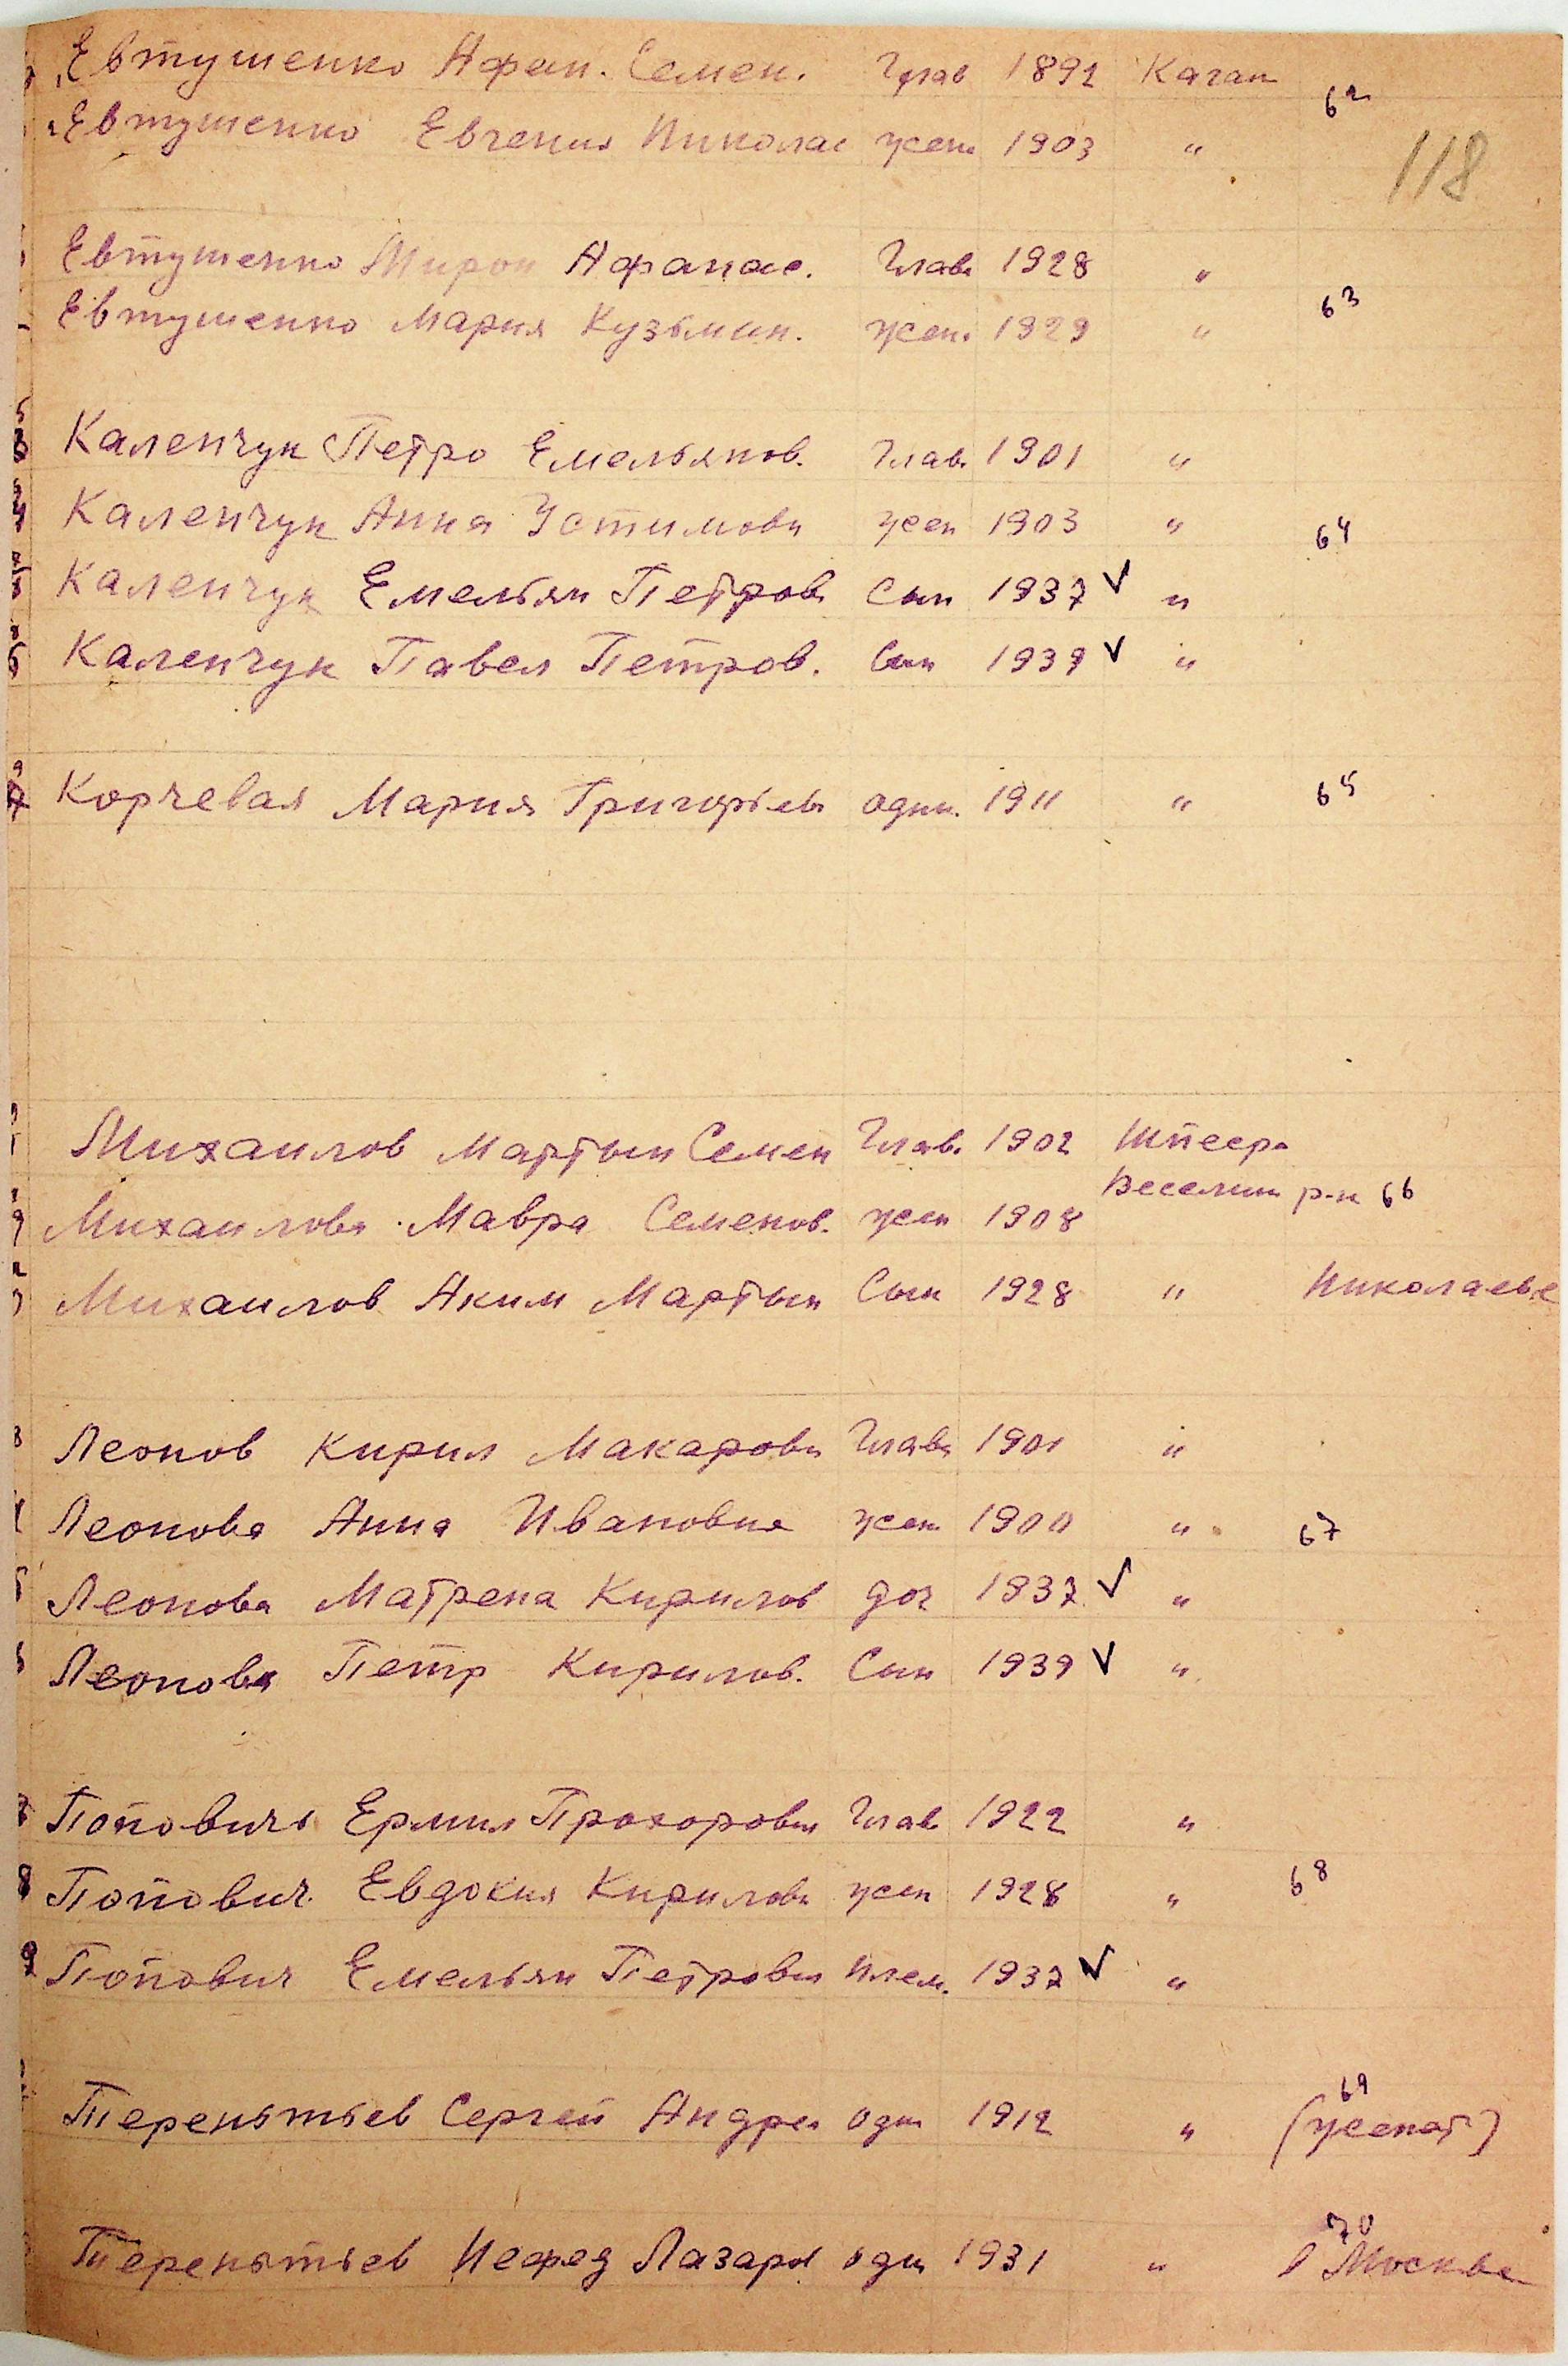 Евтушенко Афан. Семен. Глав 1892 Каган
62
Евтушенко Евгения Николас жен 1903 "
118
Евтушенко Мирон Афанас. Глав 1928 "
63
Евтушенко Мария Кузьмин. жен. 1929 "
Каленчук Петро Емельянов. Глав. 1901 "
Каленчук Анна Устимовн жен 1903 " 64
Каленчук Емельян Петров. Сын 1937 ✓ "
Каленчук Павел Петров. Сын 1939 ✓ "
Корчевая Мария Григорьевн один. 1911 " 65
Михаилов Мартын Семен Глав. 1902 Шпеера
Веселин р-н 66
Михаилова Мавра Семенов. жен 1908
Михаилов Аким Мартын Сын 1928 " Николаевс
Леонов Кирил Макарови Глава 1901 "
Леонова Анна Ивановна жен 1900 " 67
Леонова Матрена Кирилов доч 1937 ✓ "
Леонова Петр Кирилов. Сын 1939 ✓ "
Поповичь Ермил Прохорови Глав 1922 "
Попович Евдокия Кириловн жен 1928 " 68
Попович Емельян Петрови плем. 1937 ✓ "
69
Терентьев Сергей Андрея один 1912 " (женат)
70
Терентьев Нефед Лазаря один 1931 " Москве